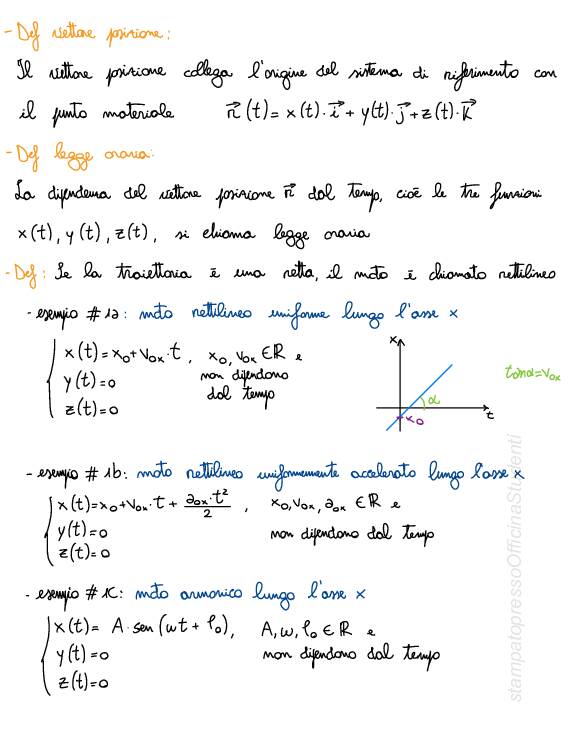 - Def vettore posizione:
Il vettore posizione collega l'origine del sistema di riferimento con
il punto materiale r⃗(t) = x(t)·i⃗ + y(t)·j⃗ + z(t)·k⃗
- Def legge oraria:
La dipendenza del vettore posizione r⃗ dal tempo, cioè le tre funzioni
x(t), y(t), z(t), si chiama legge oraria
- Def: Se la traiettoria è una retta, il moto è chiamato rettilineo
- esempio #1a: moto rettilineo uniforme lungo l'asse x
x(t) = x₀ + v₀ₓ·t , x₀, v₀ₓ ∈ ℝ e
y(t) = 0 non dipendono
z(t) = 0 dal tempo
x
α
tanα = v₀ₓ
x₀
t
- esempio #1b: moto rettilineo uniformemente accelerato lungo l'asse x
x(t) = x₀ + v₀ₓ·t + a₀ₓ·t²/2 , x₀, v₀ₓ, a₀ₓ ∈ ℝ e
y(t) = 0 non dipendono dal tempo
z(t) = 0
- esempio #1c: moto armonico lungo l'asse x
x(t) = A·sen(ωt + φ₀), A, ω, φ₀ ∈ ℝ e
y(t) = 0 non dipendono dal tempo
z(t) = 0
stampatopressoOfficinaStudenti